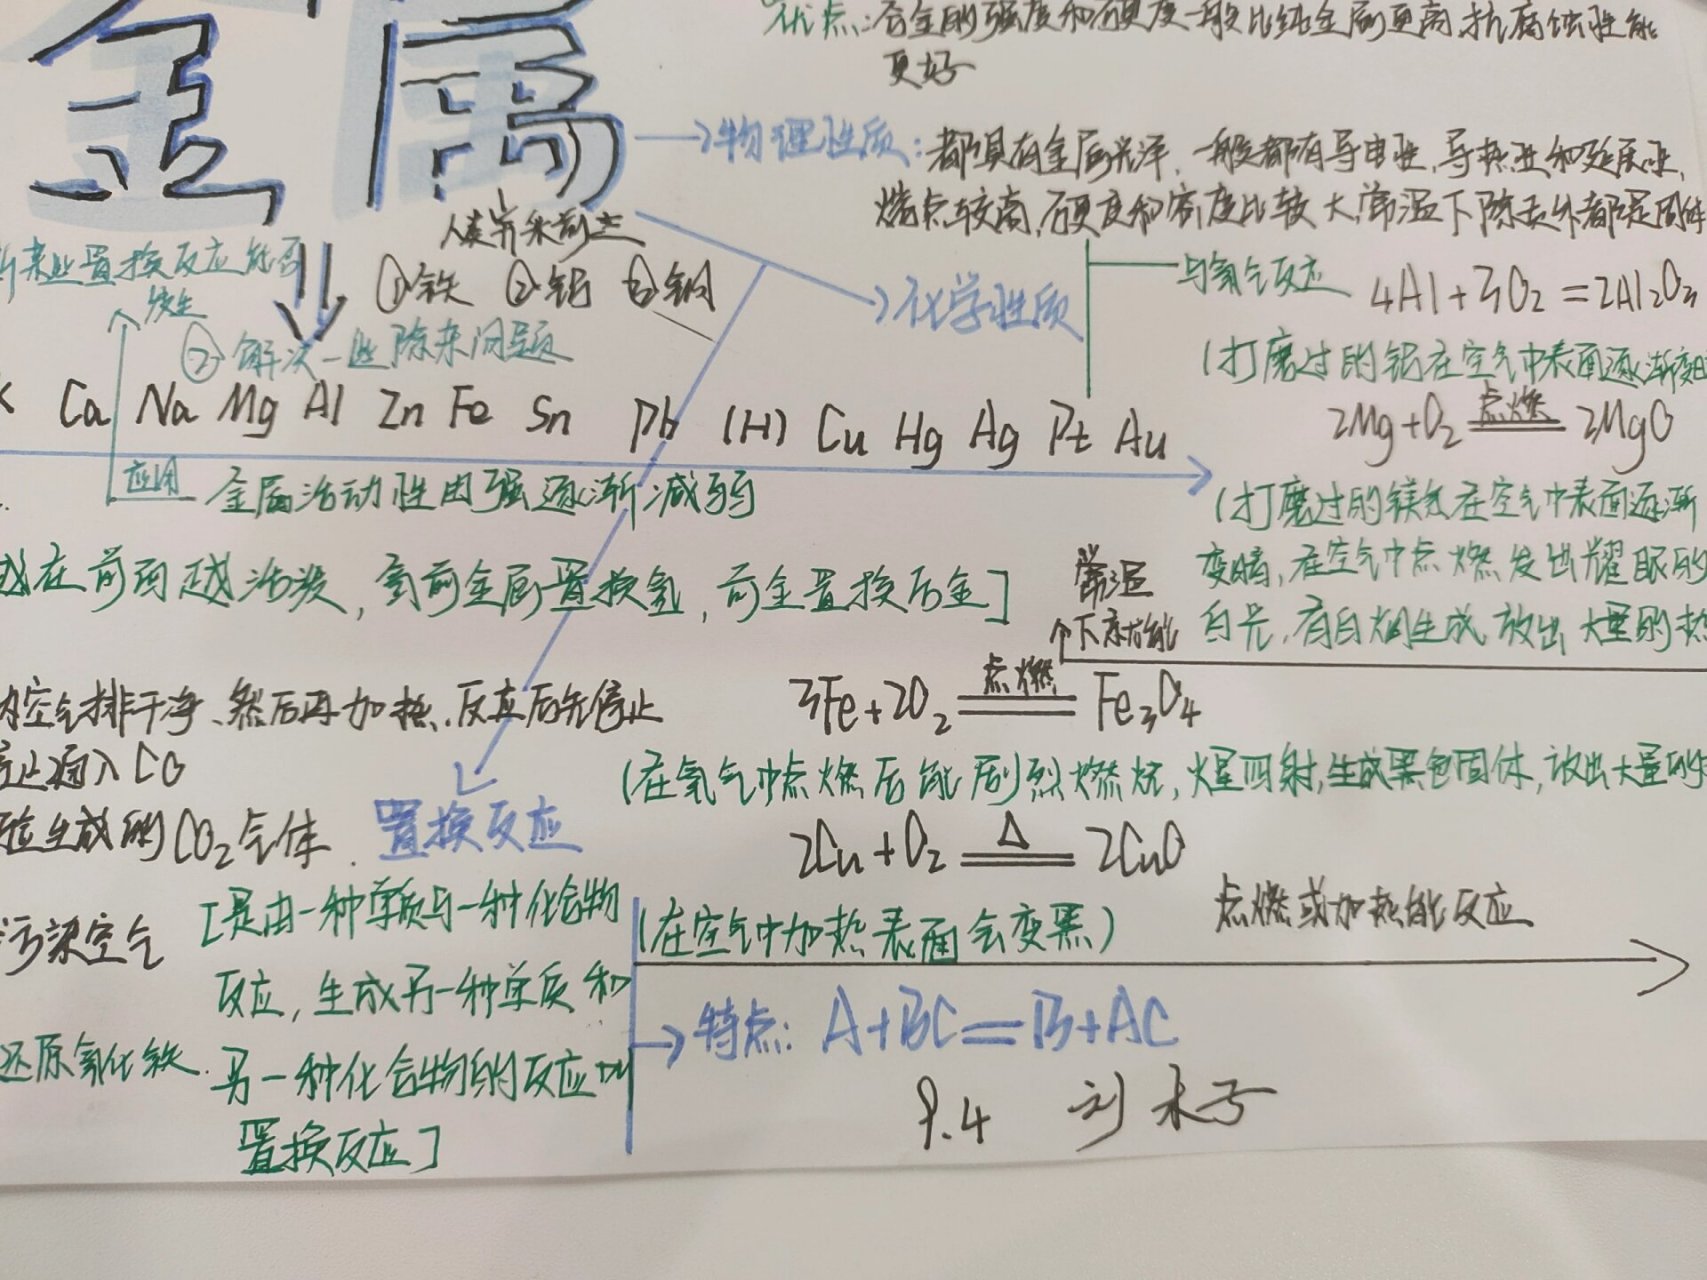 金属
优点:合金的强度和硬度一般比纯金属更高,抗腐蚀性能
更好
物理性质:都具有金属光泽,一般都有导电性、导热性和延展性,
熔点较高,硬度和密度比较大,常温下除汞外都是固体
①铁 ②铝 ③铜
置换反应能否
发生
②解决一些除杂问题
化学性质
与氧气反应 4Al+3O₂=2Al₂O₃
(打磨过的铝在空气中表面逐渐变暗
2Mg+O₂ 点燃 2MgO
(打磨过的镁条在空气中表面逐渐
变暗,在空气中点燃发出耀眼的
白光,有白烟生成 放出大量的热
K Ca Na Mg Al Zn Fe Sn Pb (H) Cu Hg Ag Pt Au
应用 金属活动性由强逐渐减弱
越在前面越活泼,氢前金属置换氢,前金置换后金]
常温
3Fe+2O₂ 点燃 Fe₃O₄
(在氧气中点燃后能剧烈燃烧,火星四射,生成黑色固体,放出大量的热
2Cu+O₂ △ 2CuO
(在空气中加热表面会变黑)
点燃或加热能反应
空气排干净、然后再加热,反应后先停止
通入CO
生成的CO₂气体.
污染空气
还原氧化铁.
置换反应
[是由一种单质与一种化合物
反应,生成另一种单质和
另一种化合物的反应叫
置换反应]
特点:A+BC=B+AC
9.4 刘木子